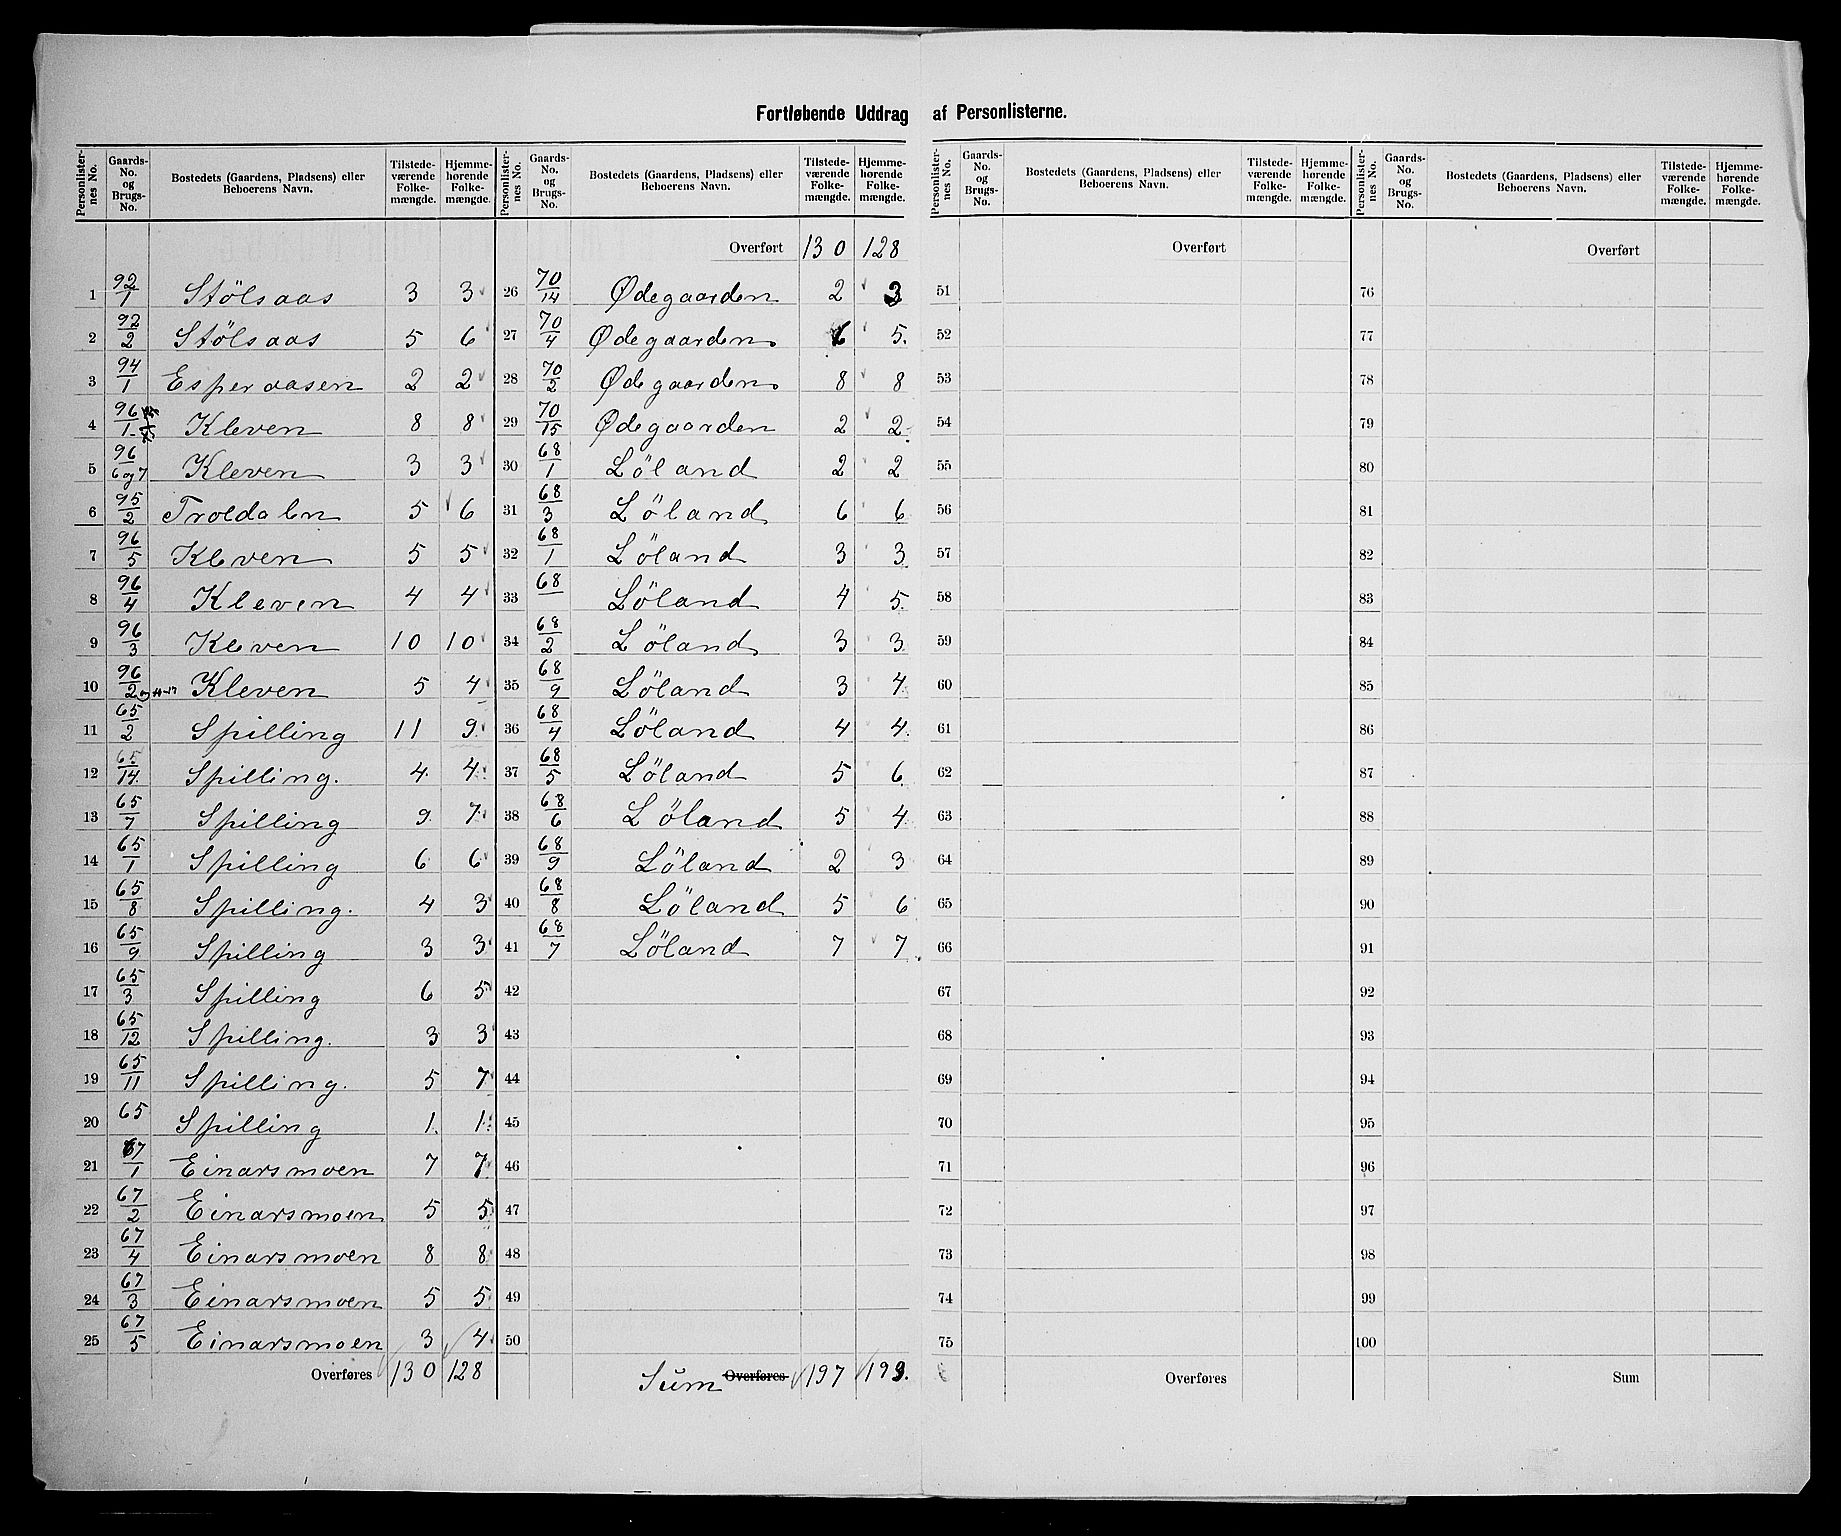 Fortløbende Uddrag af Personlisterne.
Personlisternes No. | Gaards-No. og Brugs-No. | Bostedets (Gaardens, Pladsens) eller Beboerens Navn. | Tilstedeværende Folkemængde. | Hjemmehørende Folkemængde.
Personlisternes No. | Gaards-No. og Brugs-No. | Bostedets (Gaardens, Pladsens) eller Beboerens Navn. | Tilstedeværende Folkemængde. | Hjemmehørende Folkemængde.
1 92/1 Stölsaas 3 3
2 92/2 Stölsaas 5 6
3 94/1 Esperaasen 2 2
4 96/1 Kleven 8 8
5 96/6 og 7 Kleven 3 3
6 95/2 Troldalen 5 6
7 96/5 Kleven 5 5
8 96/4 Kleven 4 4
9 96/3 Kleven 10 10
10 96/2 Kleven 5 4
11 65/2 Spilling 11 9
12 65/14 Spilling. 4 4
13 65/7 Spilling 9 7
14 65/1 Spilling 6 6
15 65/8 Spilling. 4 3
16 65/9 Spilling 3 3
17 65/3 Spilling 6 5
18 65/12 Spilling. 3 3
19 65/11 Spilling. 5 7
20 65 Spilling 1 1
21 67/1 Einarsmoen 7 7
22 67/2 Einarsmoen 5 5
23 67/4 Einarsmoen 8 8
24 67/3 Einarsmoen 5 5
25 67/5 Einarsmoen 3 4
Overføres 130 128
Overført 130 128
26 70/14 Ødegaarden 2 3
27 70/4 Ødegaarden 6 5
28 70/2 Ødegaarden 8 8
29 70/15 Ødegaarden 2 2
30 68/1 Löland 2 2
31 68/3 Löland 6 6
32 68/1 Löland 3 3
33 68 Löland 4 5
34 68/2 Löland 3 3
35 68/9 Löland 3 4
36 68/4 Löland 4 4
37 68/5 Löland 5 6
38 68/6 Löland 5 4
39 68/9 Löland 2 3
40 68/8 Löland 5 6
41 68/7 Löland 7 7
42
43
44
45
46
47
48
49
50
Sum Overføres 197 199.
Personlisternes No. | Gaards-No. og Brugs-No. | Bostedets (Gaardens, Pladsens) eller Beboerens Navn. | Tilstedeværende Folkemængde. | Hjemmehørende Folkemængde.
Overført
51
52
53
54
55
56
57
58
59
60
61
62
63
64
65
66
67
68
69
70
71
72
73
74
75
Overføres
Personlisternes No. | Gaards-No. og Brugs-No. | Bostedets (Gaardens, Pladsens) eller Beboerens Navn. | Tilstedeværende Folkemængde. | Hjemmehørende Folkemængde.
Overført
76
77
78
79
80
81
82
83
84
85
86
87
88
89
90
91
92
93
94
95
96
97
98
99
100
Sum